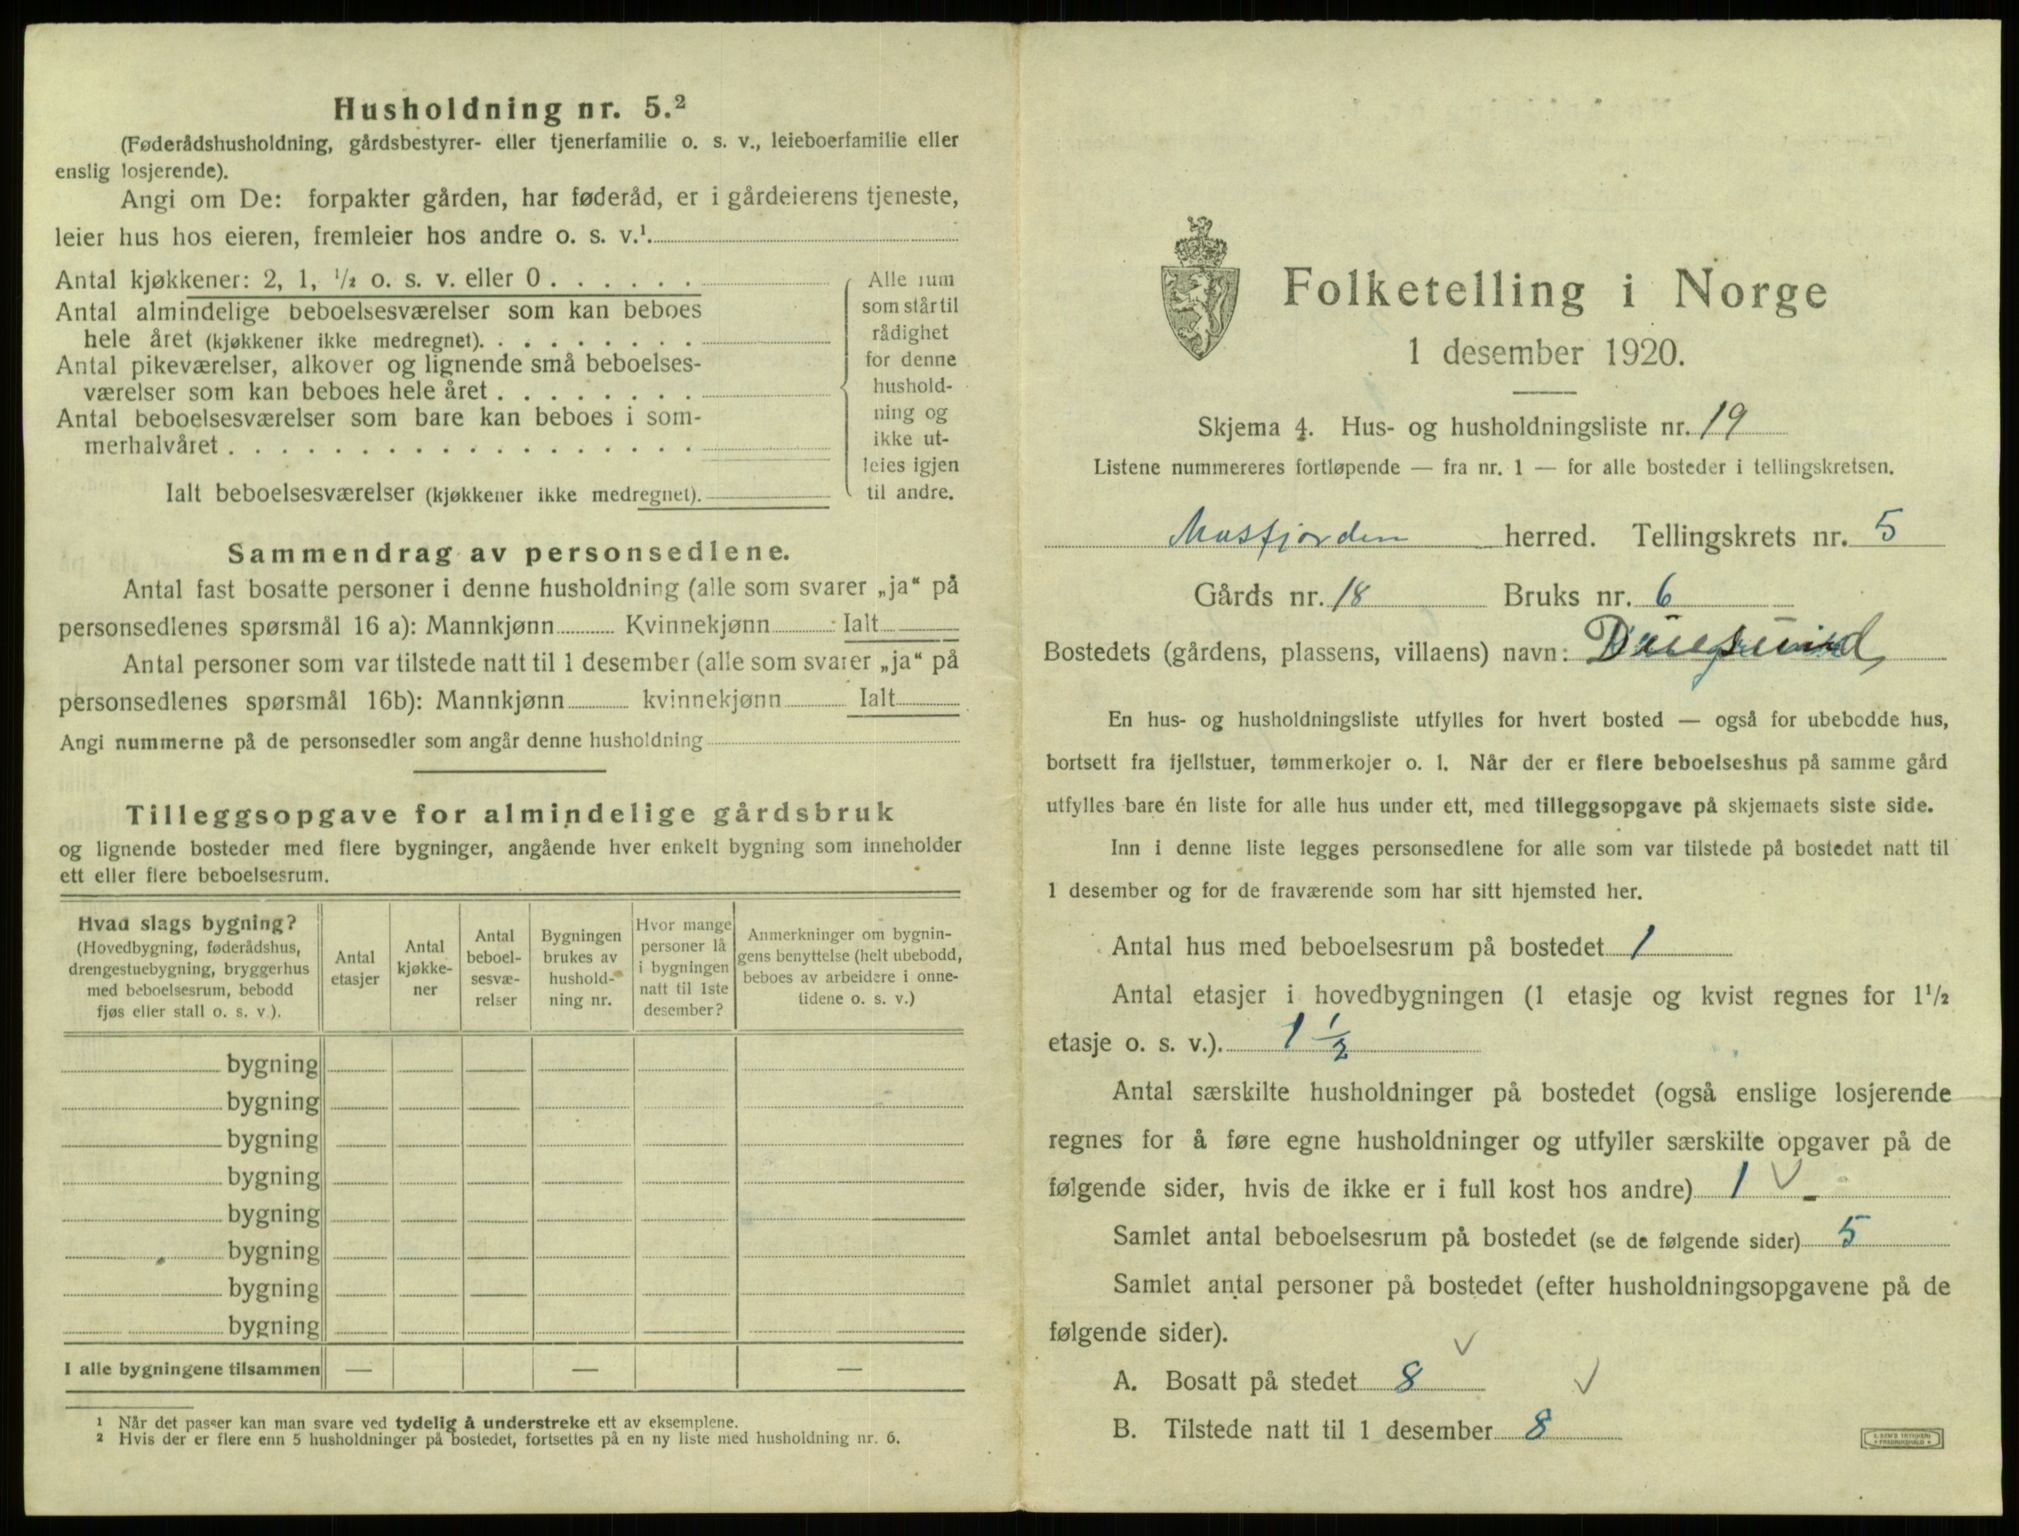 Husholdning nr. 5.²
(Føderådshusholdning, gårdsbestyrer- eller tjenerfamilie o. s. v., leieboerfamilie eller
enslig losjerende).
Angi om De: forpakter gården, har føderåd, er i gårdeierens tjeneste,
leier hus hos eieren, fremleier hos andre o. s. v.¹
Antal kjøkkener: 2, 1, ½ o. s. v. eller 0
Antal almindelige beboelsesværelser som kan beboes
hele året (kjøkkener ikke medregnet).
Antal pikeværelser, alkover og lignende små beboelses-
værelser som kan beboes hele året
Antal beboelsesværelser som bare kan beboes i som-
merhalvåret
Ialt beboelsesværelser (kjøkkener ikke medregnet).
Alle rum
som står til
rådighet
for denne
hushold-
ning og
ikke ut-
leies igjen
til andre.
Sammendrag av personsedlene.
Antal fast bosatte personer i denne husholdning (alle som svarer „ja“ på
personsedlenes spørsmål 16 a): Mannkjønn Kvinnekjønn Ialt
Antal personer som var tilstede natt til 1 desember (alle som svarer „ja“ på
personsedlenes spørsmål 16b): Mannkjønn kvinnekjønn Ialt
Angi nummerne på de personsedler som angår denne husholdning
Tilleggsopgave for almindelige gårdsbruk
og lignende bosteder med flere bygninger, angående hver enkelt bygning som inneholder
ett eller flere beboelsesrum.
Hvad slags bygning?
(Hovedbygning, føderådshus,
drengestuebygning, bryggerhus
med beboelsesrum, bebodd
fjøs eller stall o. s. v).
Antal
etasjer
Antal
kjøkke-
ner
Antal
beboel-
sesvæ-
relser
Bygningen
brukes av
hushold-
ning nr.
Hvor mange
personer lå
i bygningen
natt til 1ste
desember?
Anmerkninger om bygnin-
gens benyttelse (helt ubebodd,
beboes av arbeidere i onne-
tidene o. s. v.)
bygning
bygning
bygning
bygning
bygning
bygning
bygning
bygning
I alle bygningene tilsammen — — —
¹ Når det passer kan man svare ved tydelig å understreke ett av eksemplene.
² Hvis der er flere enn 5 husholdninger på bostedet, fortsettes på en ny liste med husholdning nr. 6.
Folketelling i Norge
1 desember 1920.
Skjema 4. Hus- og husholdningsliste nr. 19
Listene nummereres fortløpende — fra nr. 1 — for alle bosteder i tellingskretsen.
Masfjorden herred. Tellingskrets nr. 5
Gårds nr. 18 Bruks nr. 6
Bostedets (gårdens, plassens, villaens) navn:
En hus- og husholdningsliste utfylles for hvert bosted — også for ubebodde hus,
bortsett fra fjellstuer, tømmerkojer o. l. Når der er flere beboelseshus på samme gård
utfylles bare én liste for alle hus under ett, med tilleggsopgave på skjemaets siste side.
Inn i denne liste legges personsedlene for alle som var tilstede på bostedet natt til
1 desember og for de fraværende som har sitt hjemsted her.
Antal hus med beboelsesrum på bostedet 1
Antal etasjer i hovedbygningen (1 etasje og kvist regnes for 1½
etasje o. s. v.). 1 ½
Antal særskilte husholdninger på bostedet (også enslige losjerende
regnes for å føre egne husholdninger og utfyller særskilte opgaver på de
følgende sider, hvis de ikke er i full kost hos andre) 1
Samlet antal beboelsesrum på bostedet (se de følgende sider) 5
Samlet antal personer på bostedet (efter husholdningsopgavene på de
følgende sider).
A. Bosatt på stedet 8
B. Tilstede natt til 1 desember 8